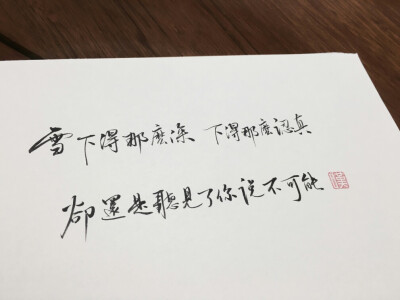 雪下得那麽深 下得那麽認真
卻還是聽見了你说不可能